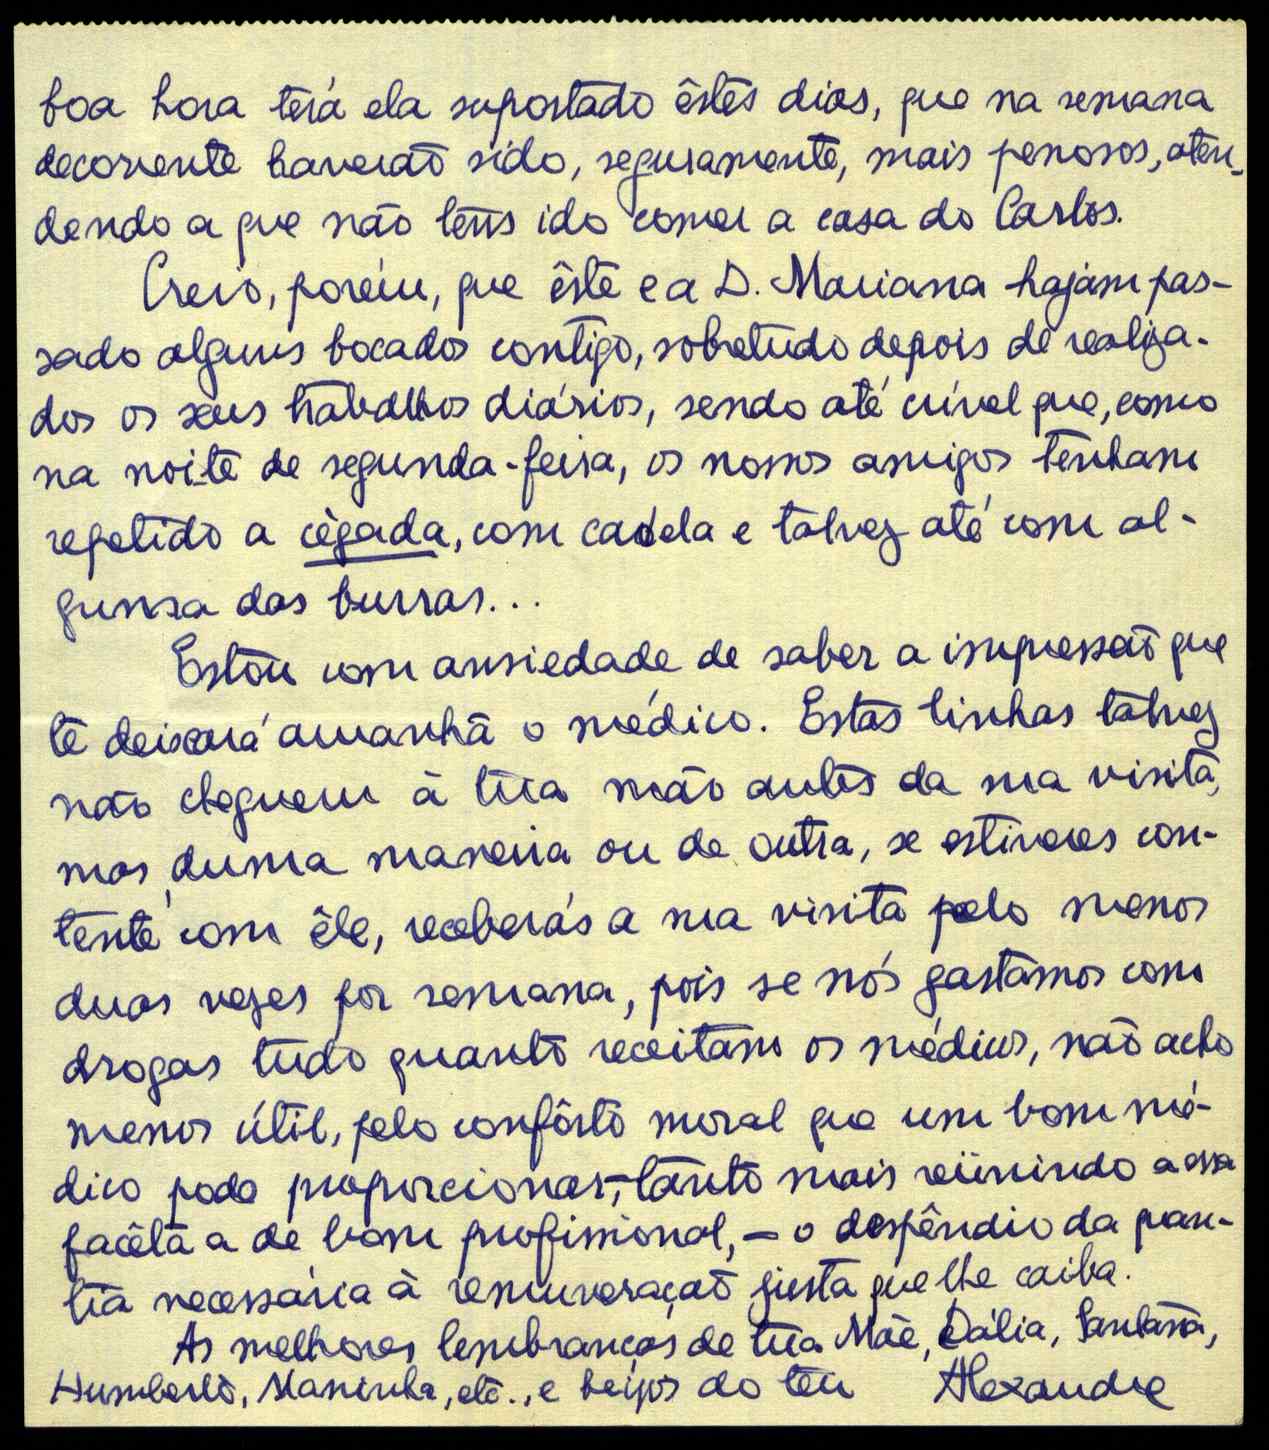 boa hora terá ela suportado êstes dias, que na semana
decorrente haverão sido, seguramente, mais penosos, aten-
dendo a que não tens ido comer a casa do Carlos.
Creio, porém, que êste e a D. Mariana hajam pas-
sado alguns bocados contigo, sobretudo depois de realiza-
dos os seus trabalhos diários, sendo até crível que, como
na noite de segunda-feira, os nossos amigos tenham
repetido a cègada, com cadela e talvez até com al-
guma das burras...
Estou com ansiedade de saber a impressão que
te deixará amanhã o médico. Estas linhas talvez
não cheguem à tua mão antes da sua visita,
mas, duma maneira ou de outra, se estiveres con-
tente com êle, receberás a sua visita pelo menos
duas vezes por semana, pois se nós gastamos com
drogas tudo quanto receitam os médicos, não acho
menos útil, pelo confôrto moral que um bom mé-
dico pode proporcionar, - tanto mais reünindo a essa
facêta a de bom profissional, - o despêndio da quan-
tia necessária à remuneração justa que lhe caiba.
As melhores lembranças de tua Mãe, Dália, Santana,
Humberto, Maninha, etc., e beijos do teu Alexandre